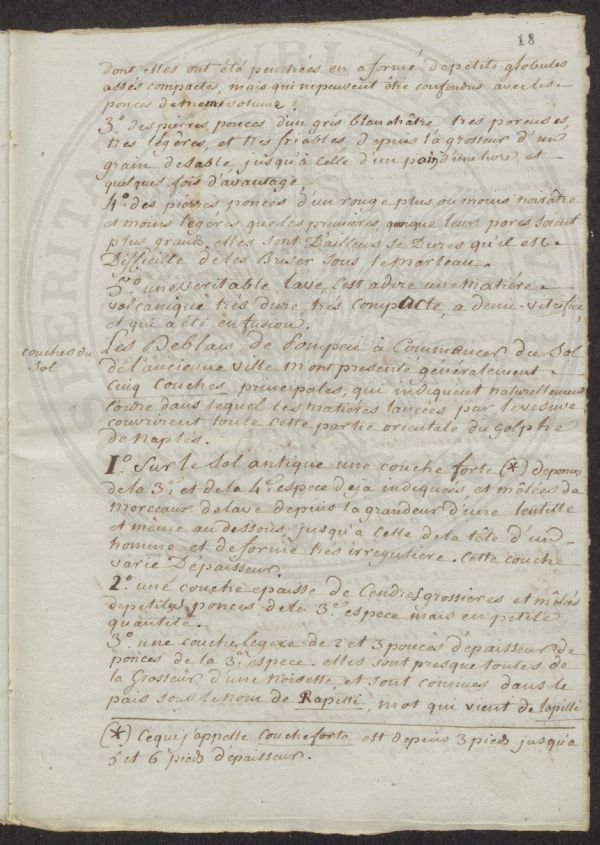 18
dont elles ont été penetrées en a formé de petits globules
assés compactes, mais qui ne peuvent être confondus avec les
ponces de meme volume.
3.º des pierres ponces d'un gris blanchâtre tres poreuses,
tres légères, et tres friables, depuis la grosseur d'un
grain de sable jusqu'à celle d'un pain d'une livre et
quelques fois d'avantage.
4.º des pierres ponces d'un rouge plus ou moins noirâtre
et moins légéres que les premières, quoique leurs pores soient
plus grands. elles sont D'ailleurs si Dures qu'il est
Difficille de les Briser sous le marteau.
5.º une veritable lave, c'est adire une matiére
volcanique tres dure, tres compacte, a demi-vitrifiée,
et qui a été en fusion.
couches du
Sol
Les Deblais de Pompeii à Commencer du Sol
de l'ancienne ville m'ont presenté généralement
Cinq Couches principales, qui indiquent naturellement
l'ordre dans lequel les matières lancées par le vesuve
couvrirent toute cette partie orientale du golphe
de Naples.
1.º Sur le Sol antique une couche forte (*) de ponces
de la 3.e et de la 4.e espece deja indiquées, et mêlées de
morceaux de lave depuis la grandeur d'une lentille
et même au dessous, jusqu'à celle de la tête d'un
homme et de forme trés irreguliere. Cette couche
varie D'épaisseur.
2.º une couche epaisse de Cendres grossieres et mêlées
de petites ponces de la 3.e espece mais en petite
quantité.
3.º une couche legere de 2 et 3 pouces d'épaisseur de
ponces de la 3.e espece. elles sont presque toutes de
la Grosseur d'une noisette et sont connues dans le
païs sous le nom de Rapilli, mot qui vient de lapilli
(*) Ce qui j'appelle Couche forte est depuis 3 pieds jusqu'a
5 et 6 pieds d'épaisseur.